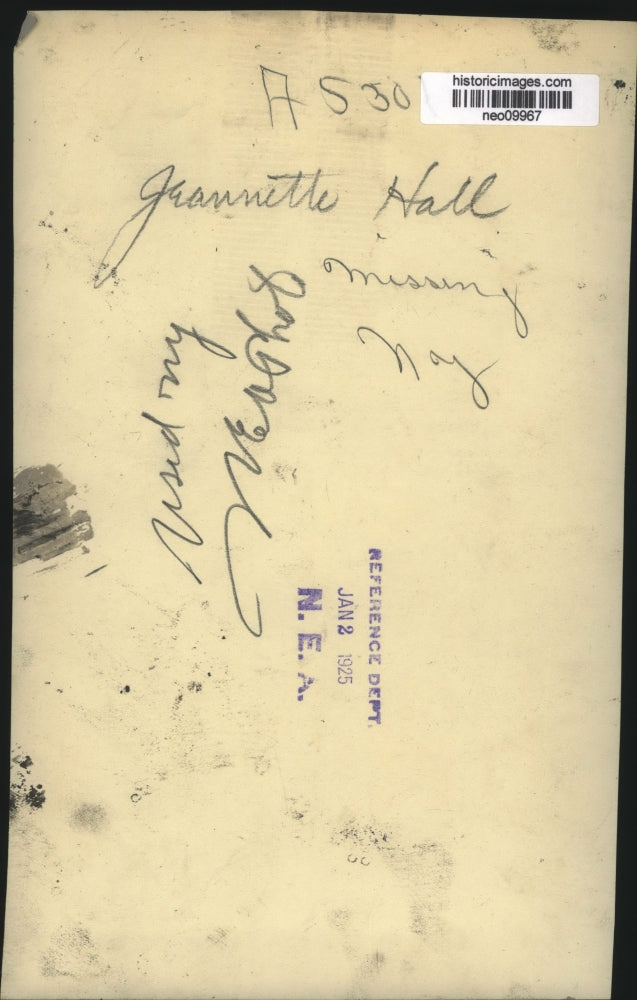 A 530
historicimages.com
neo09967
Jeannette Hall
missing
Ny
Used my
REFERENCE DEPT.
JAN 2 1925
N. E. A.